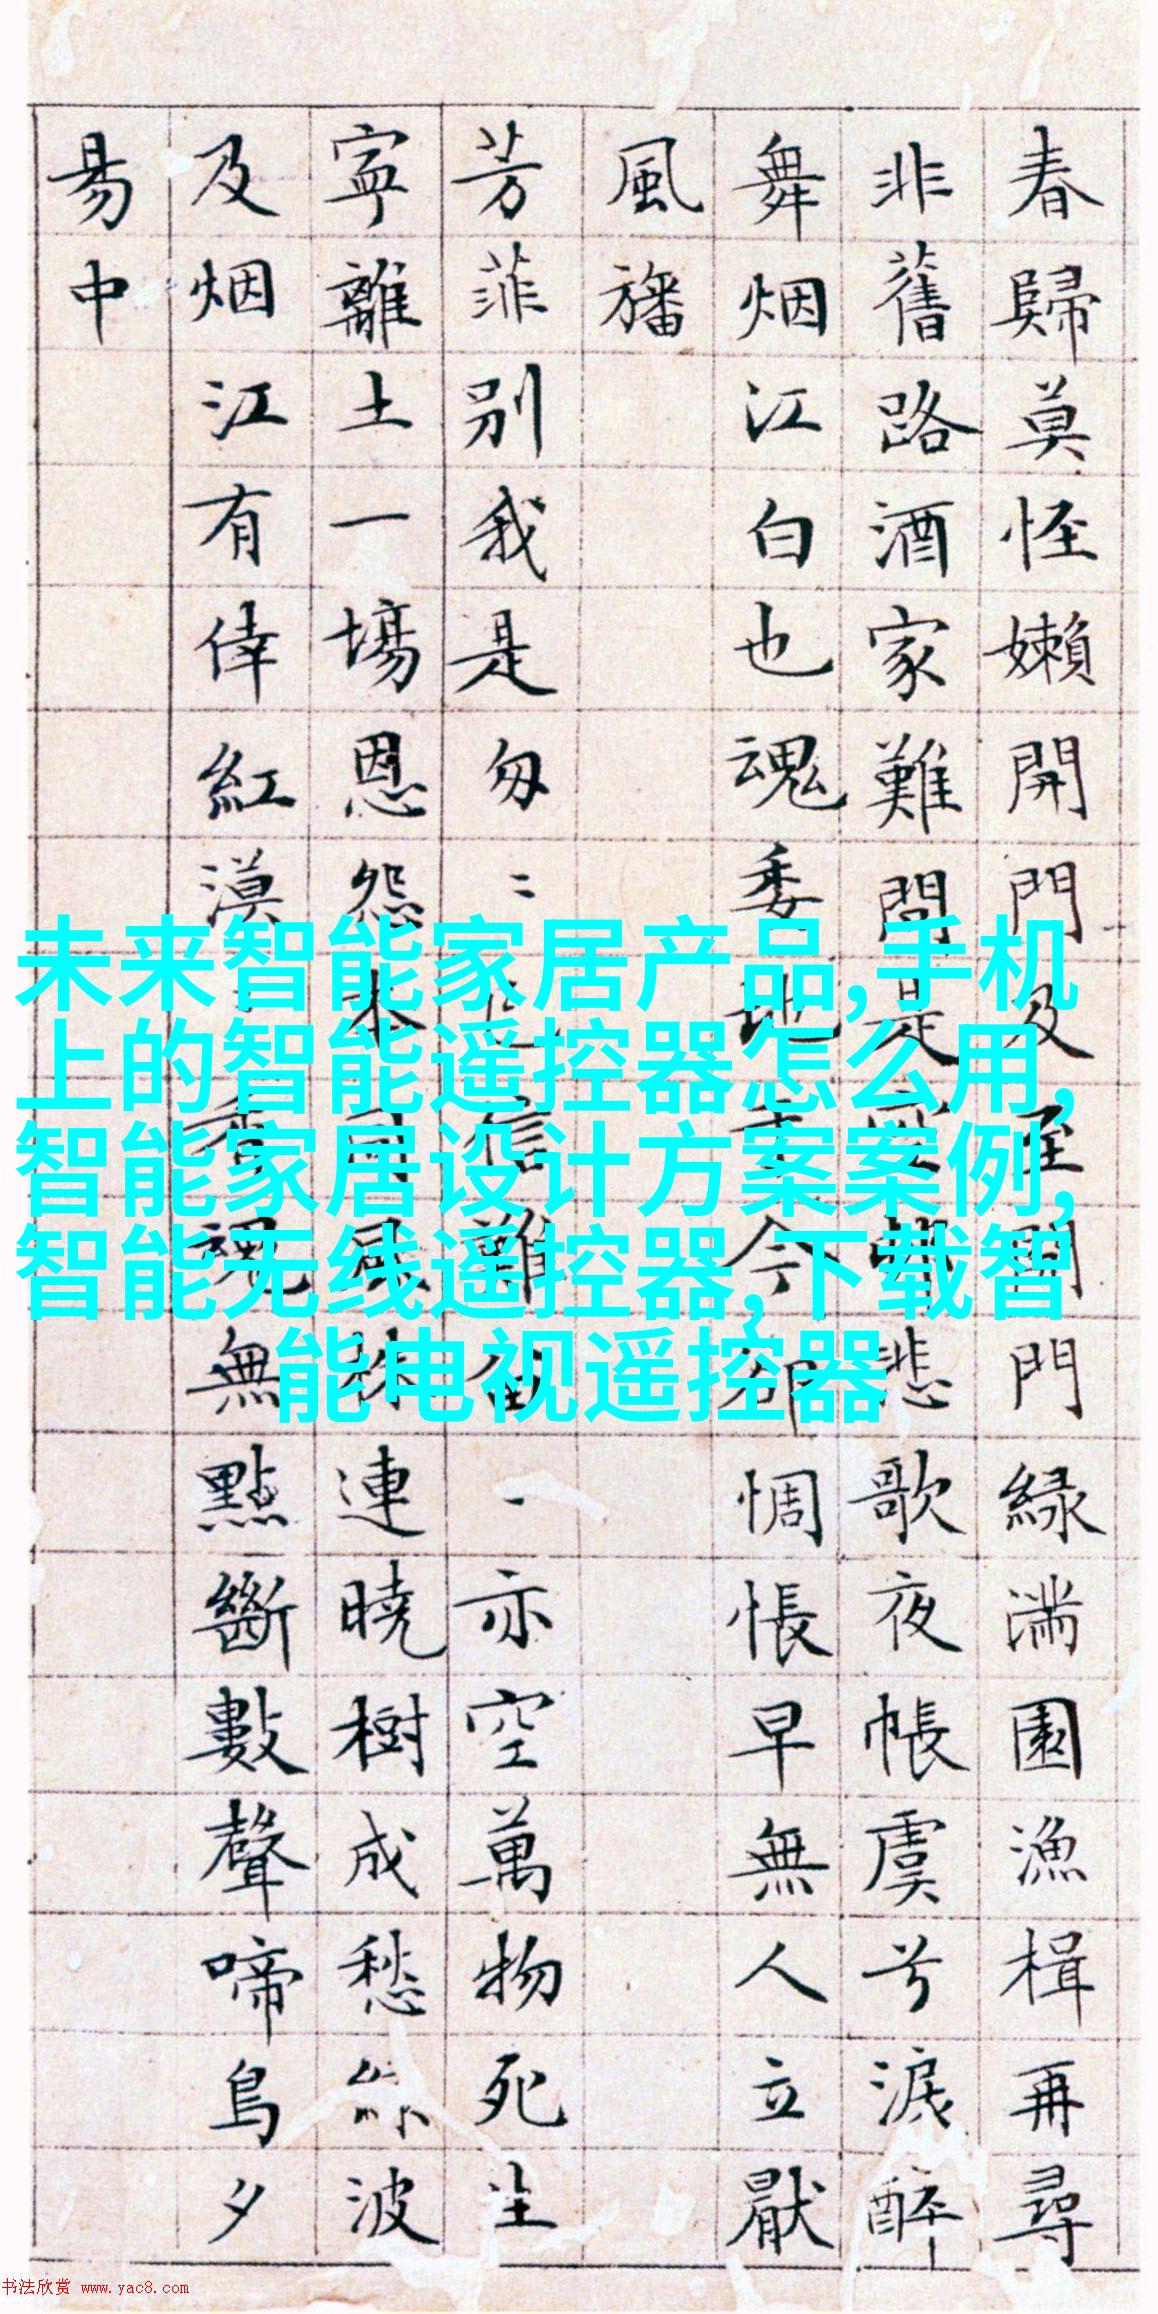 春歸莫怪嬾開門及至開門緑满園漁楫再尋
非舊路酒家難問是
悲歌夜帳虞兮淚醉
舞烟江白也魂委地
今
惆悵早無人立厭
風旛
芳菲别我是匆〻
信難
亦空萬物死生
寧離土一塲恩怨本同風株連曉樹成愁
波
及烟江有倖紅漠
香魂無點斷數聲啼鳥夕
昜中
未来智能家居产品,手机
上的智能遥控器怎么用,
智能家居设计方案案例,
智能无线遥控器,下载智
能电视遥控器
书法欣赏 www.yac8.com